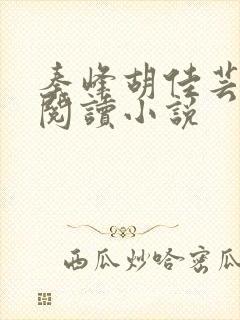 秦峰胡佳芸
閱讀小說
西瓜炒哈密瓜